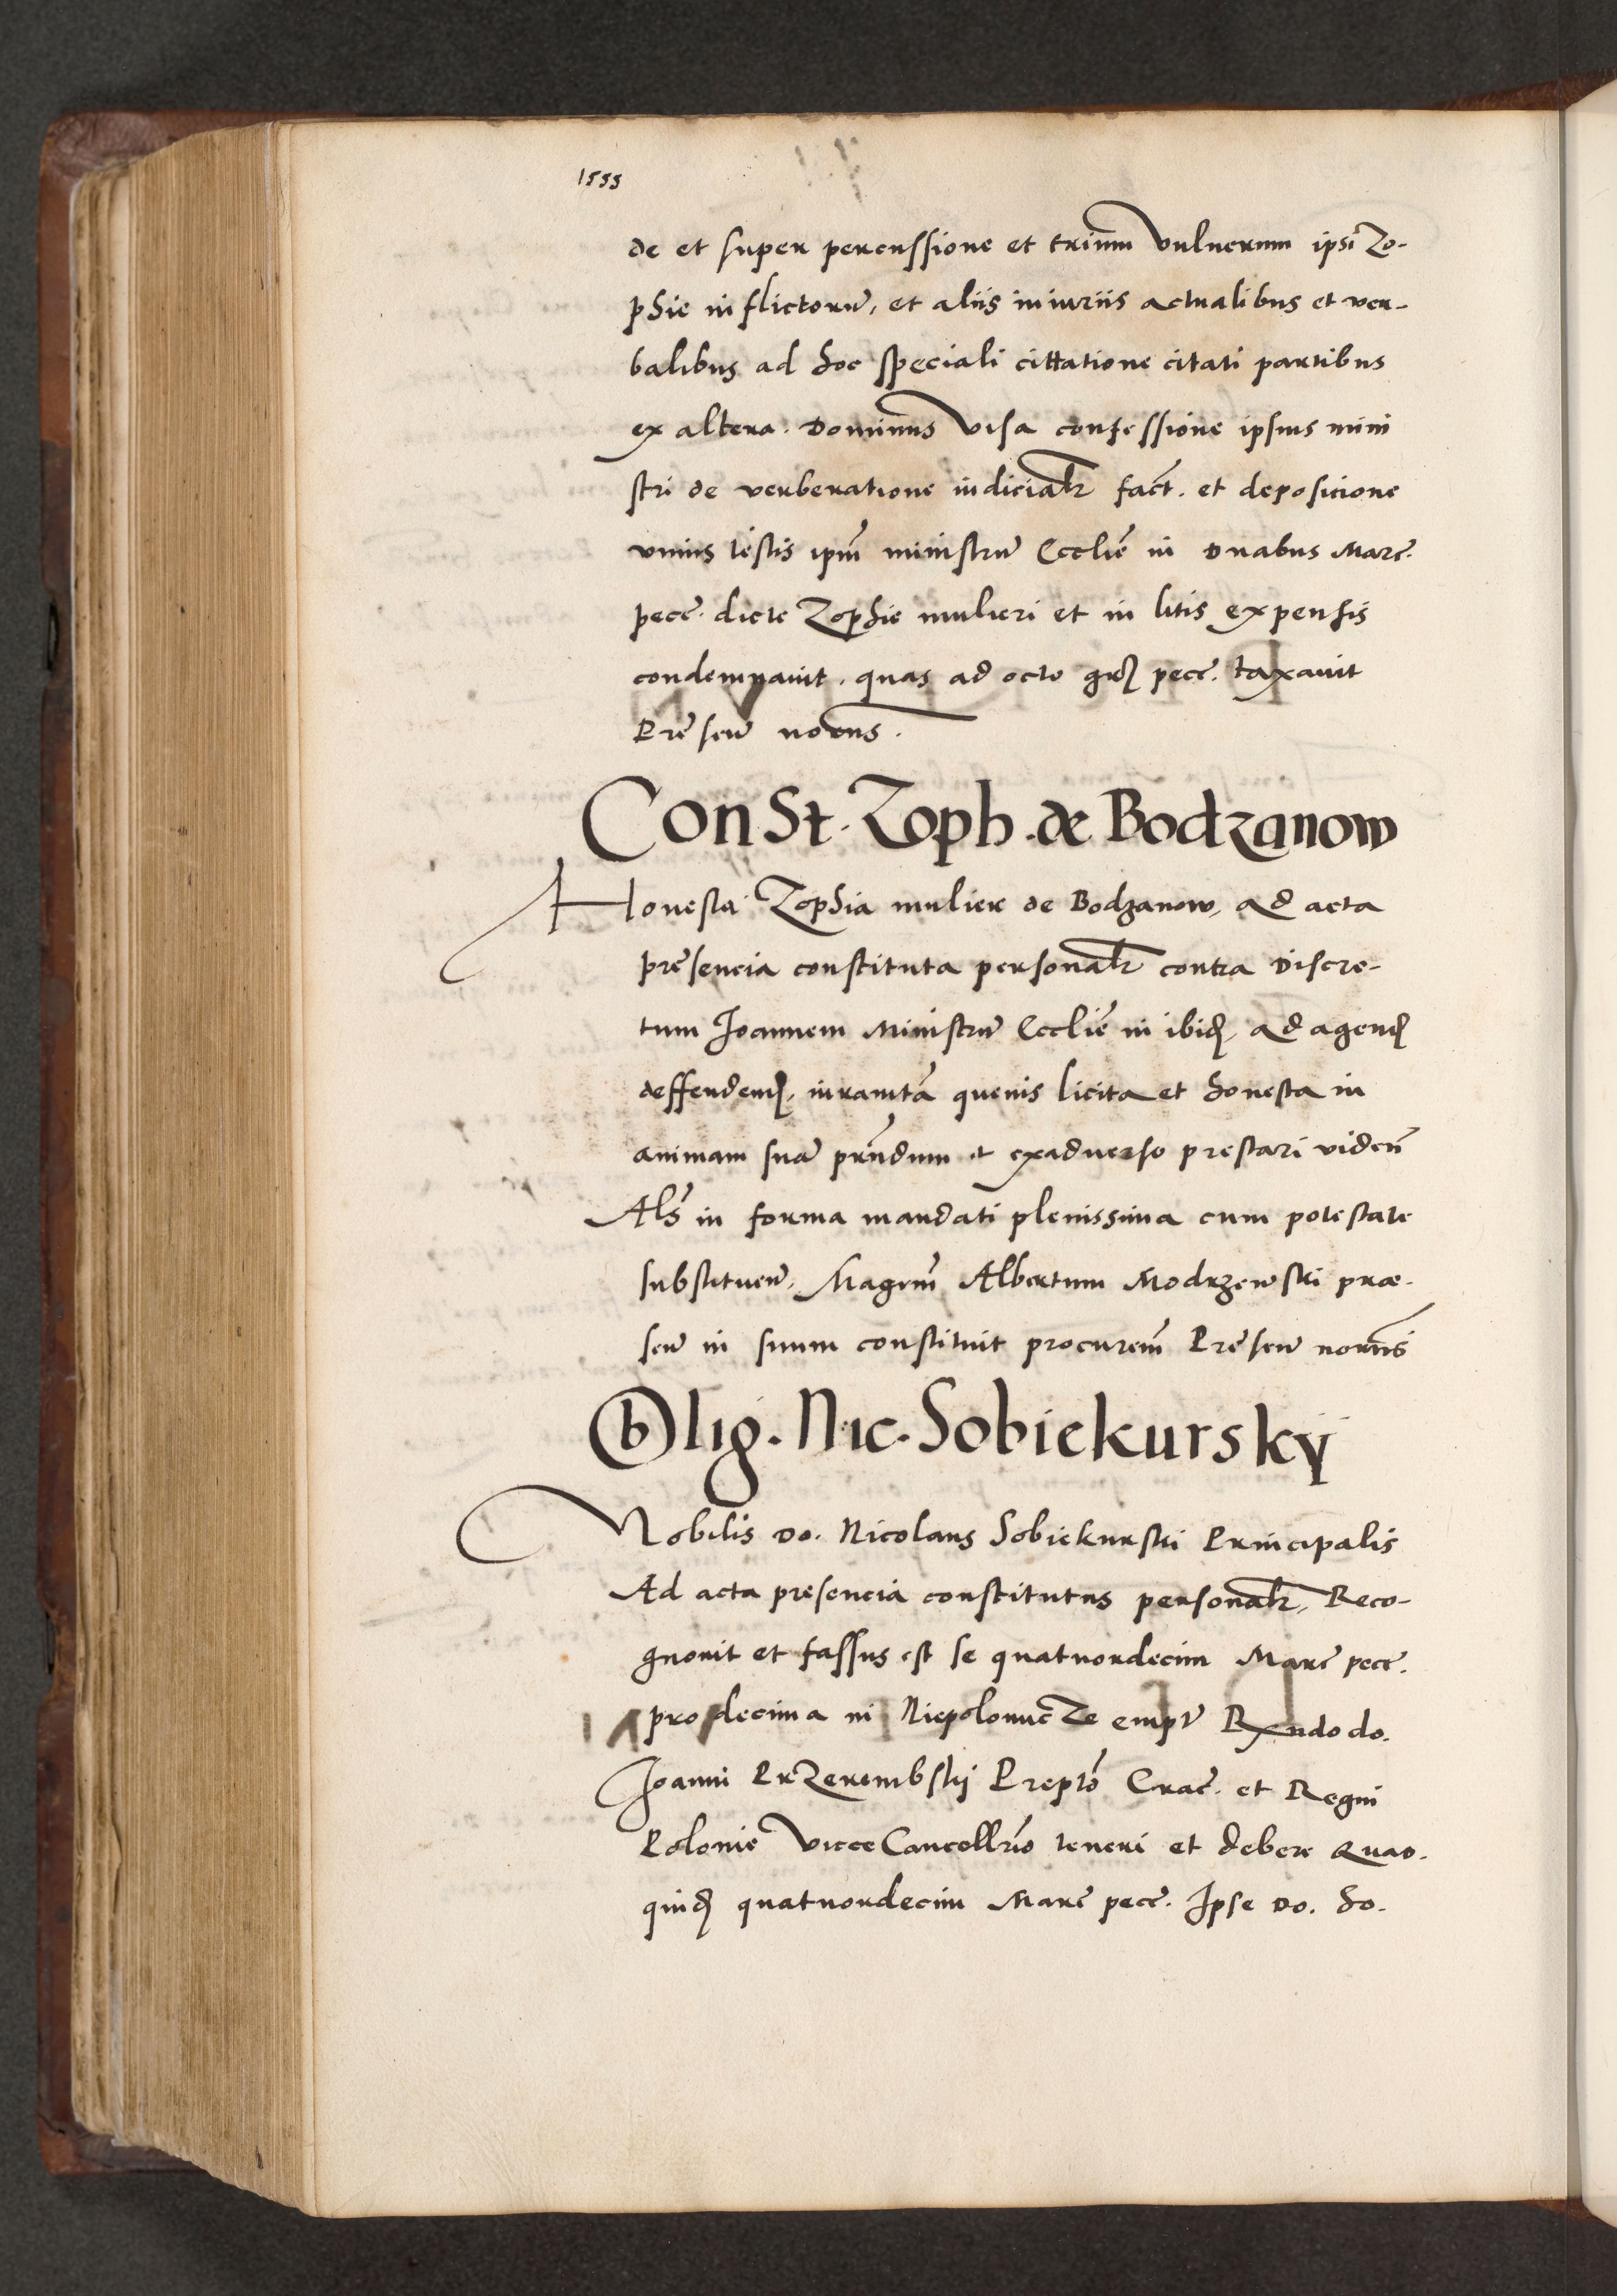 1555
de et super percussione et trium vulnerum ipsi Zo-
phie inflictorũ, et aliis iniuriis actualibus et ver-
balibus ad hoc speciali cittatione citati partibus
ex altera. Dominus visa confessione ipsius mini
stri de verberatione iudicialr̃ fact̃. et deposicione
vnius testis ipm̃ ministrũ Ecclie̅ in duabus Marc̃.
pecc̃. dicte Zophie mulieri et in litis expensis
condemnauit, quas ad octo pecc̃. taxauit
Pre̅sen̅
Const. Zoph. de Bodzanow
Honesta Zophia mulier de Bodzanow, ad acta
pre̅sencia constituta personalr̃ contra Discre-
tum Joannem Ministrũ Ecclie̅ in ibid, ad agend
deffendend, iuramtã quevis licita et honesta in
animam suã prñdum et exaduerso prestari viden̅
Als̃ in forma mandati plenissima cum potestate
substituen̅, Magrm̃ Albertum Modrzewski præ-
sen̅ in suum constituit procurem̃ Pre̅sen̅
Oblig. Nic. Sobiekursky
Nobilis Do. Nicolaus Sobiekurski Principalis
Ad acta presencia constitutus personalr̃, Reco-
gnouit et fassus est se quatuordecim Marc̃ pecc̃.
pro decima in empt̃ Rndo do.
Joanni Przerembskij Prepto̅ Crac̃. et Regni
Polonie ViceCancellrio̅ teneri et debere Quas-
quid quatuordecim Marc̃ pecc̃. Ipse Do. So-